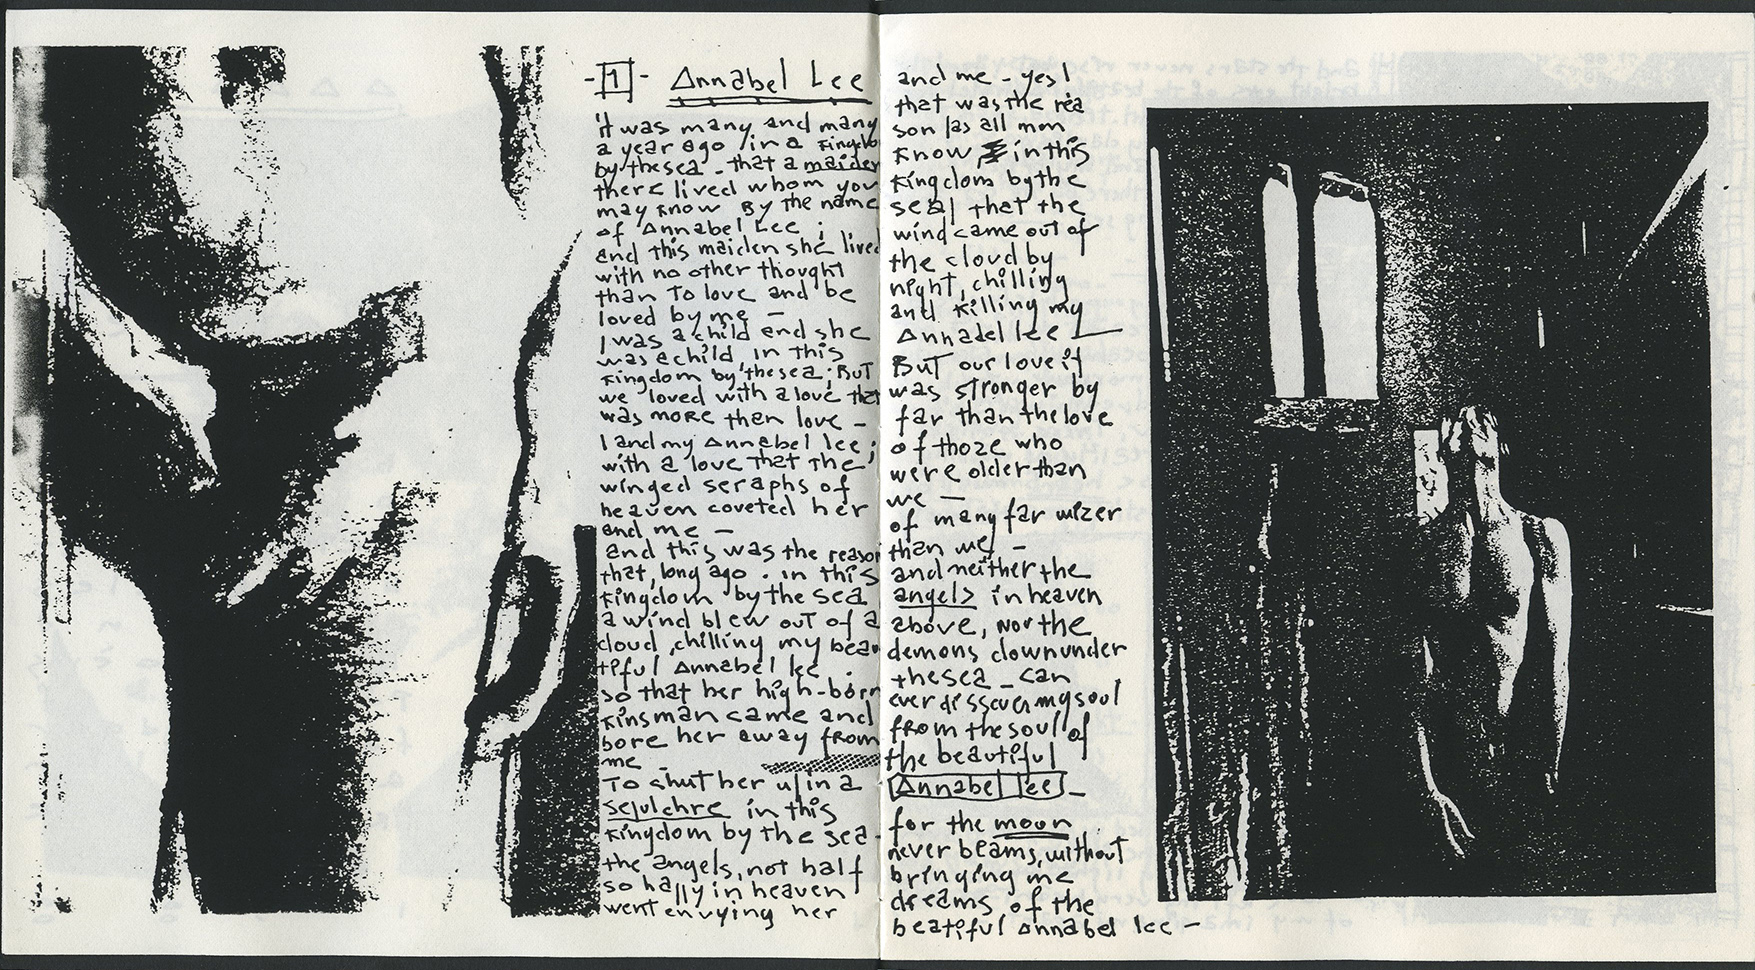 -1- Annabel Lee
it was many and many
a year ago in a kingdo
by the sea - that a maiden
there lived whom you
may know By the name
of Annabel Lee ;
and this maiden she lived
with no other thought
than To love and be
loved by me -
I was a child and she
was a child, in this
kingdom by the sea; BuT
we loved with a love that
was more than love -
I and my Annabel lee;
with a love That The
winged seraphs of
heaven coveted her
and me -
and this was the reason
that, long ago . in this
kingdom by the sea
a wind blew ouT of a
cloud, chilling my beau
tiful Annabel lee .
so that her high-born
kinsman came and
bore her away from
me -
To shuT her up in a
sepulchre in this
kingdom by the sea -
the angels, not half
so happy in heaven
went envying her
and me - yes!
that was the rea
son (as all men
know, in this
kingdom by the
sea) that the
wind came out of
the cloud by
night, chilling
and killing my
Annabel lee
BuT our love it
was stronger by
far than the love
of thoze who
were older than
we -
of many far wizer
than we -
and neither the
angels in heaven
above, nor the
demons down under
the sea - can
ever dissever my soul
from the soul of
the beautiful
Annabel lee -
for the moon
never beams, without
bringing me
dreams of the
beatiful Annabel lee -